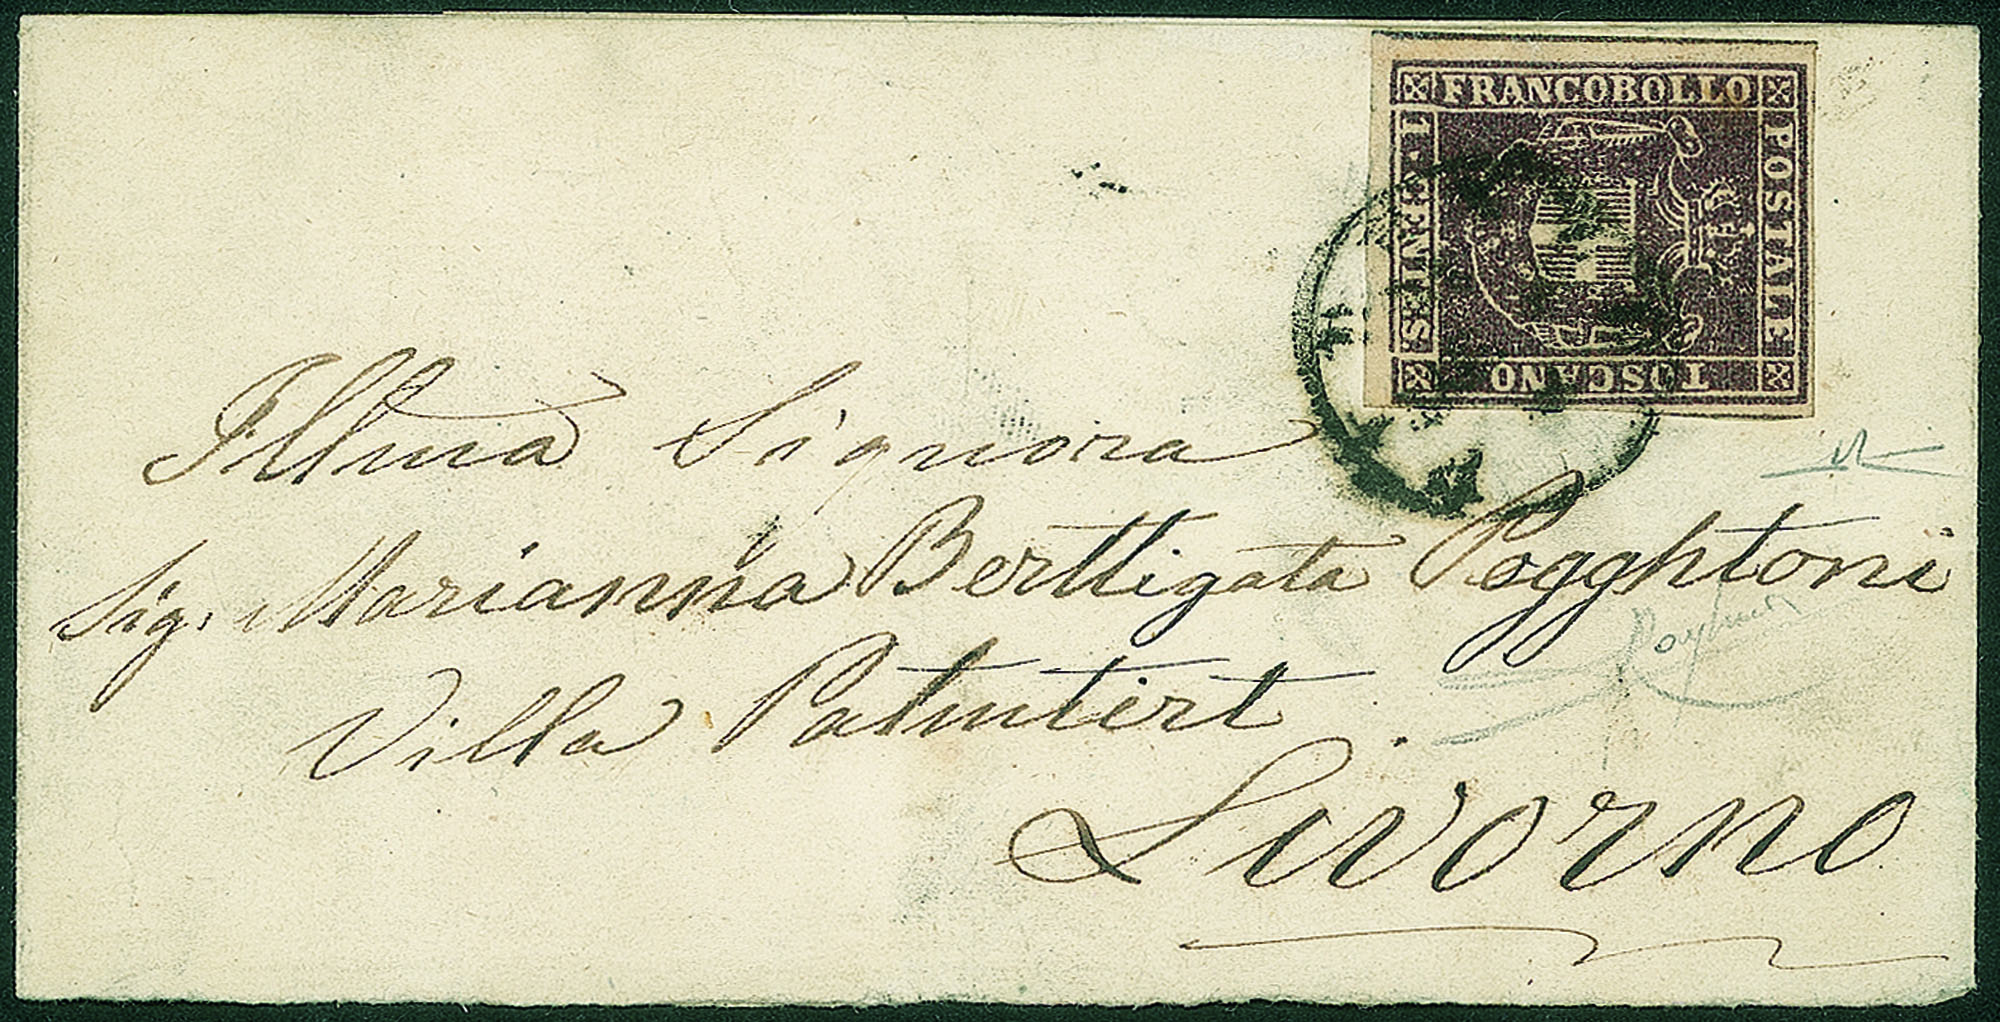 FRANCOBOLLO
POSTALE
TOSCANO
CENT. 1
Illma Signora
Sig. Marianna Berttigata Pogghtoni
Villa Palmtert
Livorno